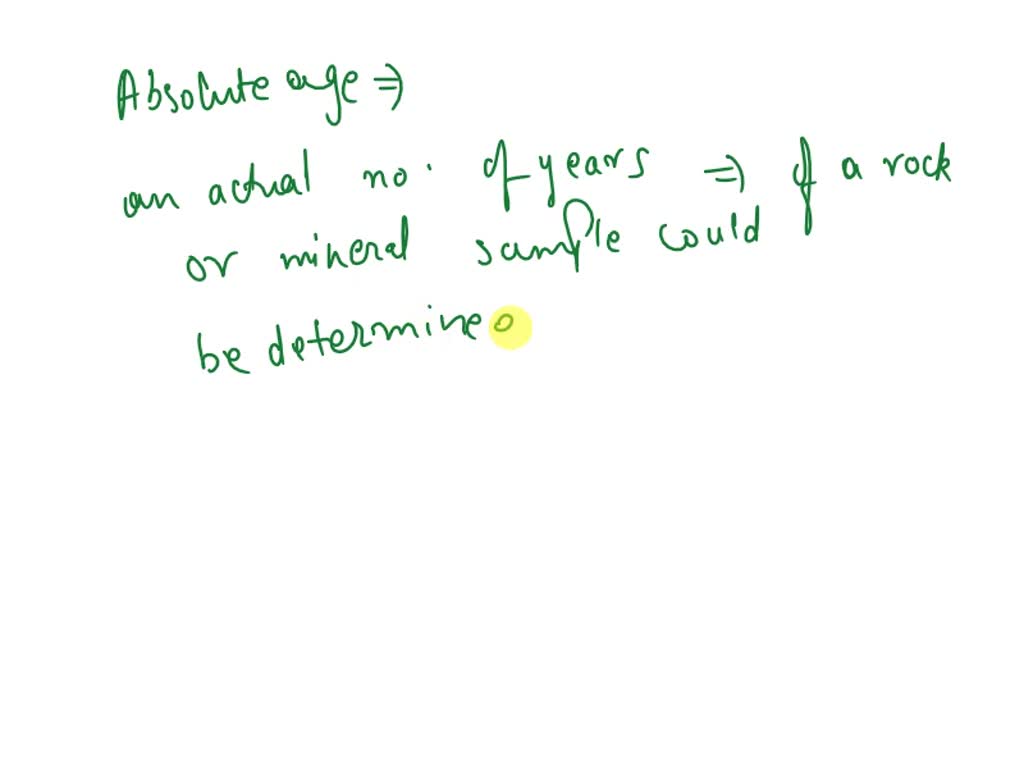 Absolute age ⇒
an actual no. of years ⇒ of a rock
or mineral sample could
be determineo